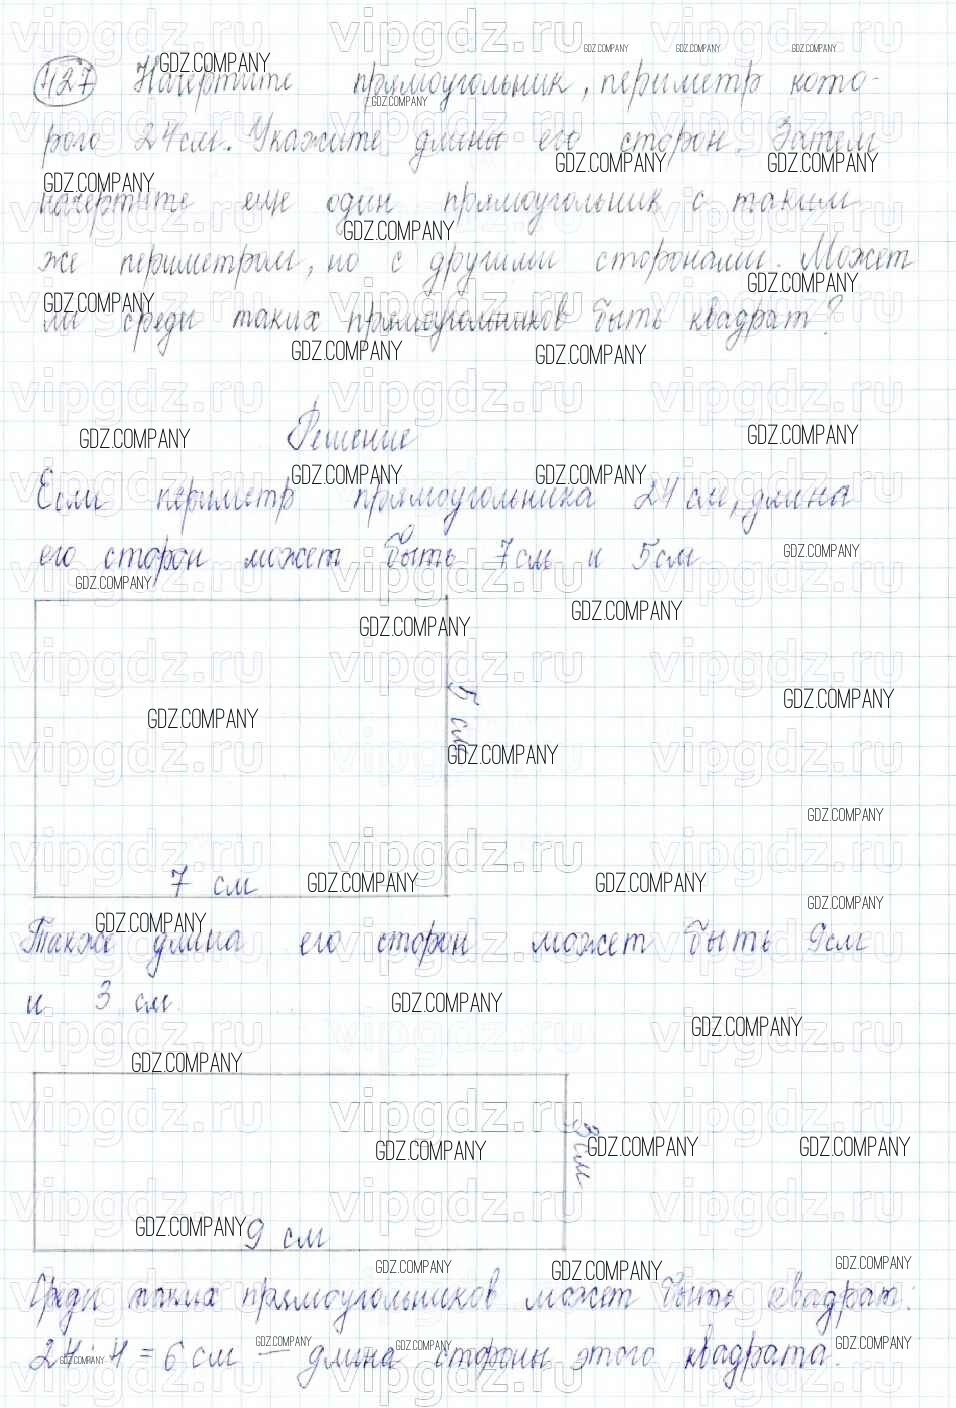 427 Начертите прямоугольник, периметр кото-
рого 24 см. Укажите длины его сторон. Затем
начертите еще один прямоугольник с таким
же периметром, но с другими сторонами. Может
ли среди таких прямоугольников быть квадрат?
Решение
Если периметр прямоугольника 24 см, длина
его сторон может быть 7 см и 5 см
5 см
7 см
Также длина его сторон может быть 9 см
и 3 см
3 см
9 см
Среди таких прямоугольников может быть квадрат:
24 : 4 = 6 см — длина стороны этого квадрата.
GDZ.COMPANY
vipgdz.ru